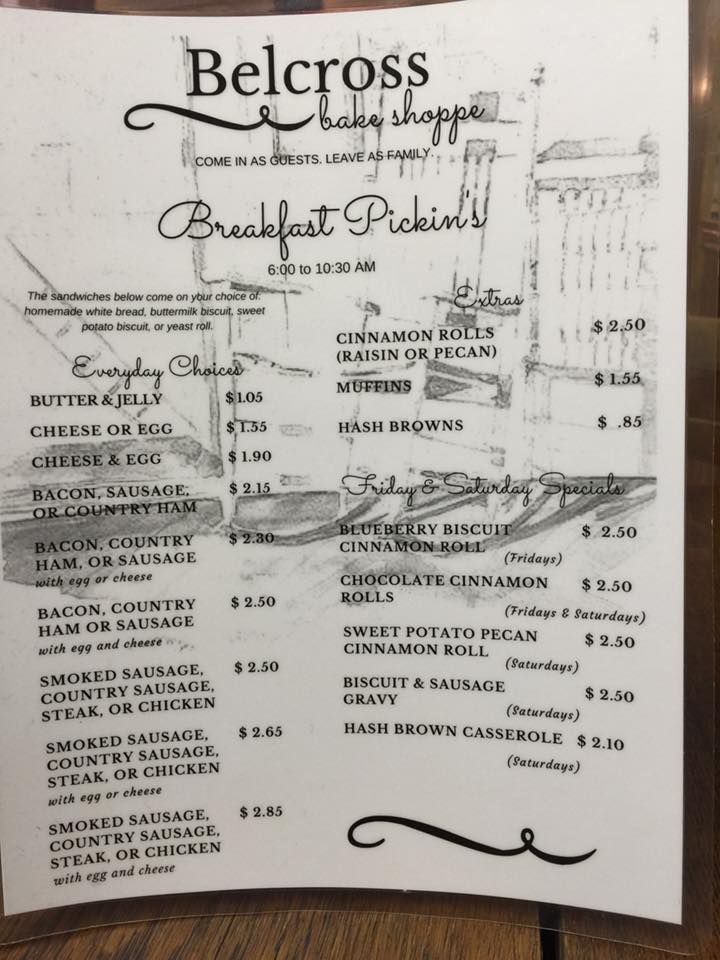 Belcross
bake shoppe
COME IN AS GUESTS. LEAVE AS FAMILY.
Breakfast Pickin's
6:00 to 10:30 AM
The sandwiches below come on your choice of:
homemade white bread, buttermilk biscuit, sweet
potato biscuit, or yeast roll.
Everyday Choices
BUTTER & JELLY $1.05
CHEESE OR EGG $1.55
CHEESE & EGG $1.90
BACON, SAUSAGE, $2.15
OR COUNTRY HAM
BACON, COUNTRY $2.30
HAM, OR SAUSAGE
with egg or cheese
BACON, COUNTRY $2.50
HAM OR SAUSAGE
with egg and cheese
SMOKED SAUSAGE, $2.50
COUNTRY SAUSAGE,
STEAK, OR CHICKEN
SMOKED SAUSAGE, $2.65
COUNTRY SAUSAGE,
STEAK, OR CHICKEN
with egg or cheese
SMOKED SAUSAGE, $2.85
COUNTRY SAUSAGE,
STEAK, OR CHICKEN
with egg and cheese
Extras
CINNAMON ROLLS $2.50
(RAISIN OR PECAN)
MUFFINS $1.55
HASH BROWNS $ .85
Friday & Saturday Specials
BLUEBERRY BISCUIT $ 2.50
CINNAMON ROLL
(Fridays)
CHOCOLATE CINNAMON $2.50
ROLLS
(Fridays & Saturdays)
SWEET POTATO PECAN $2.50
CINNAMON ROLL
(Saturdays)
BISCUIT & SAUSAGE $2.50
GRAVY
(Saturdays)
HASH BROWN CASSEROLE $2.10
(Saturdays)